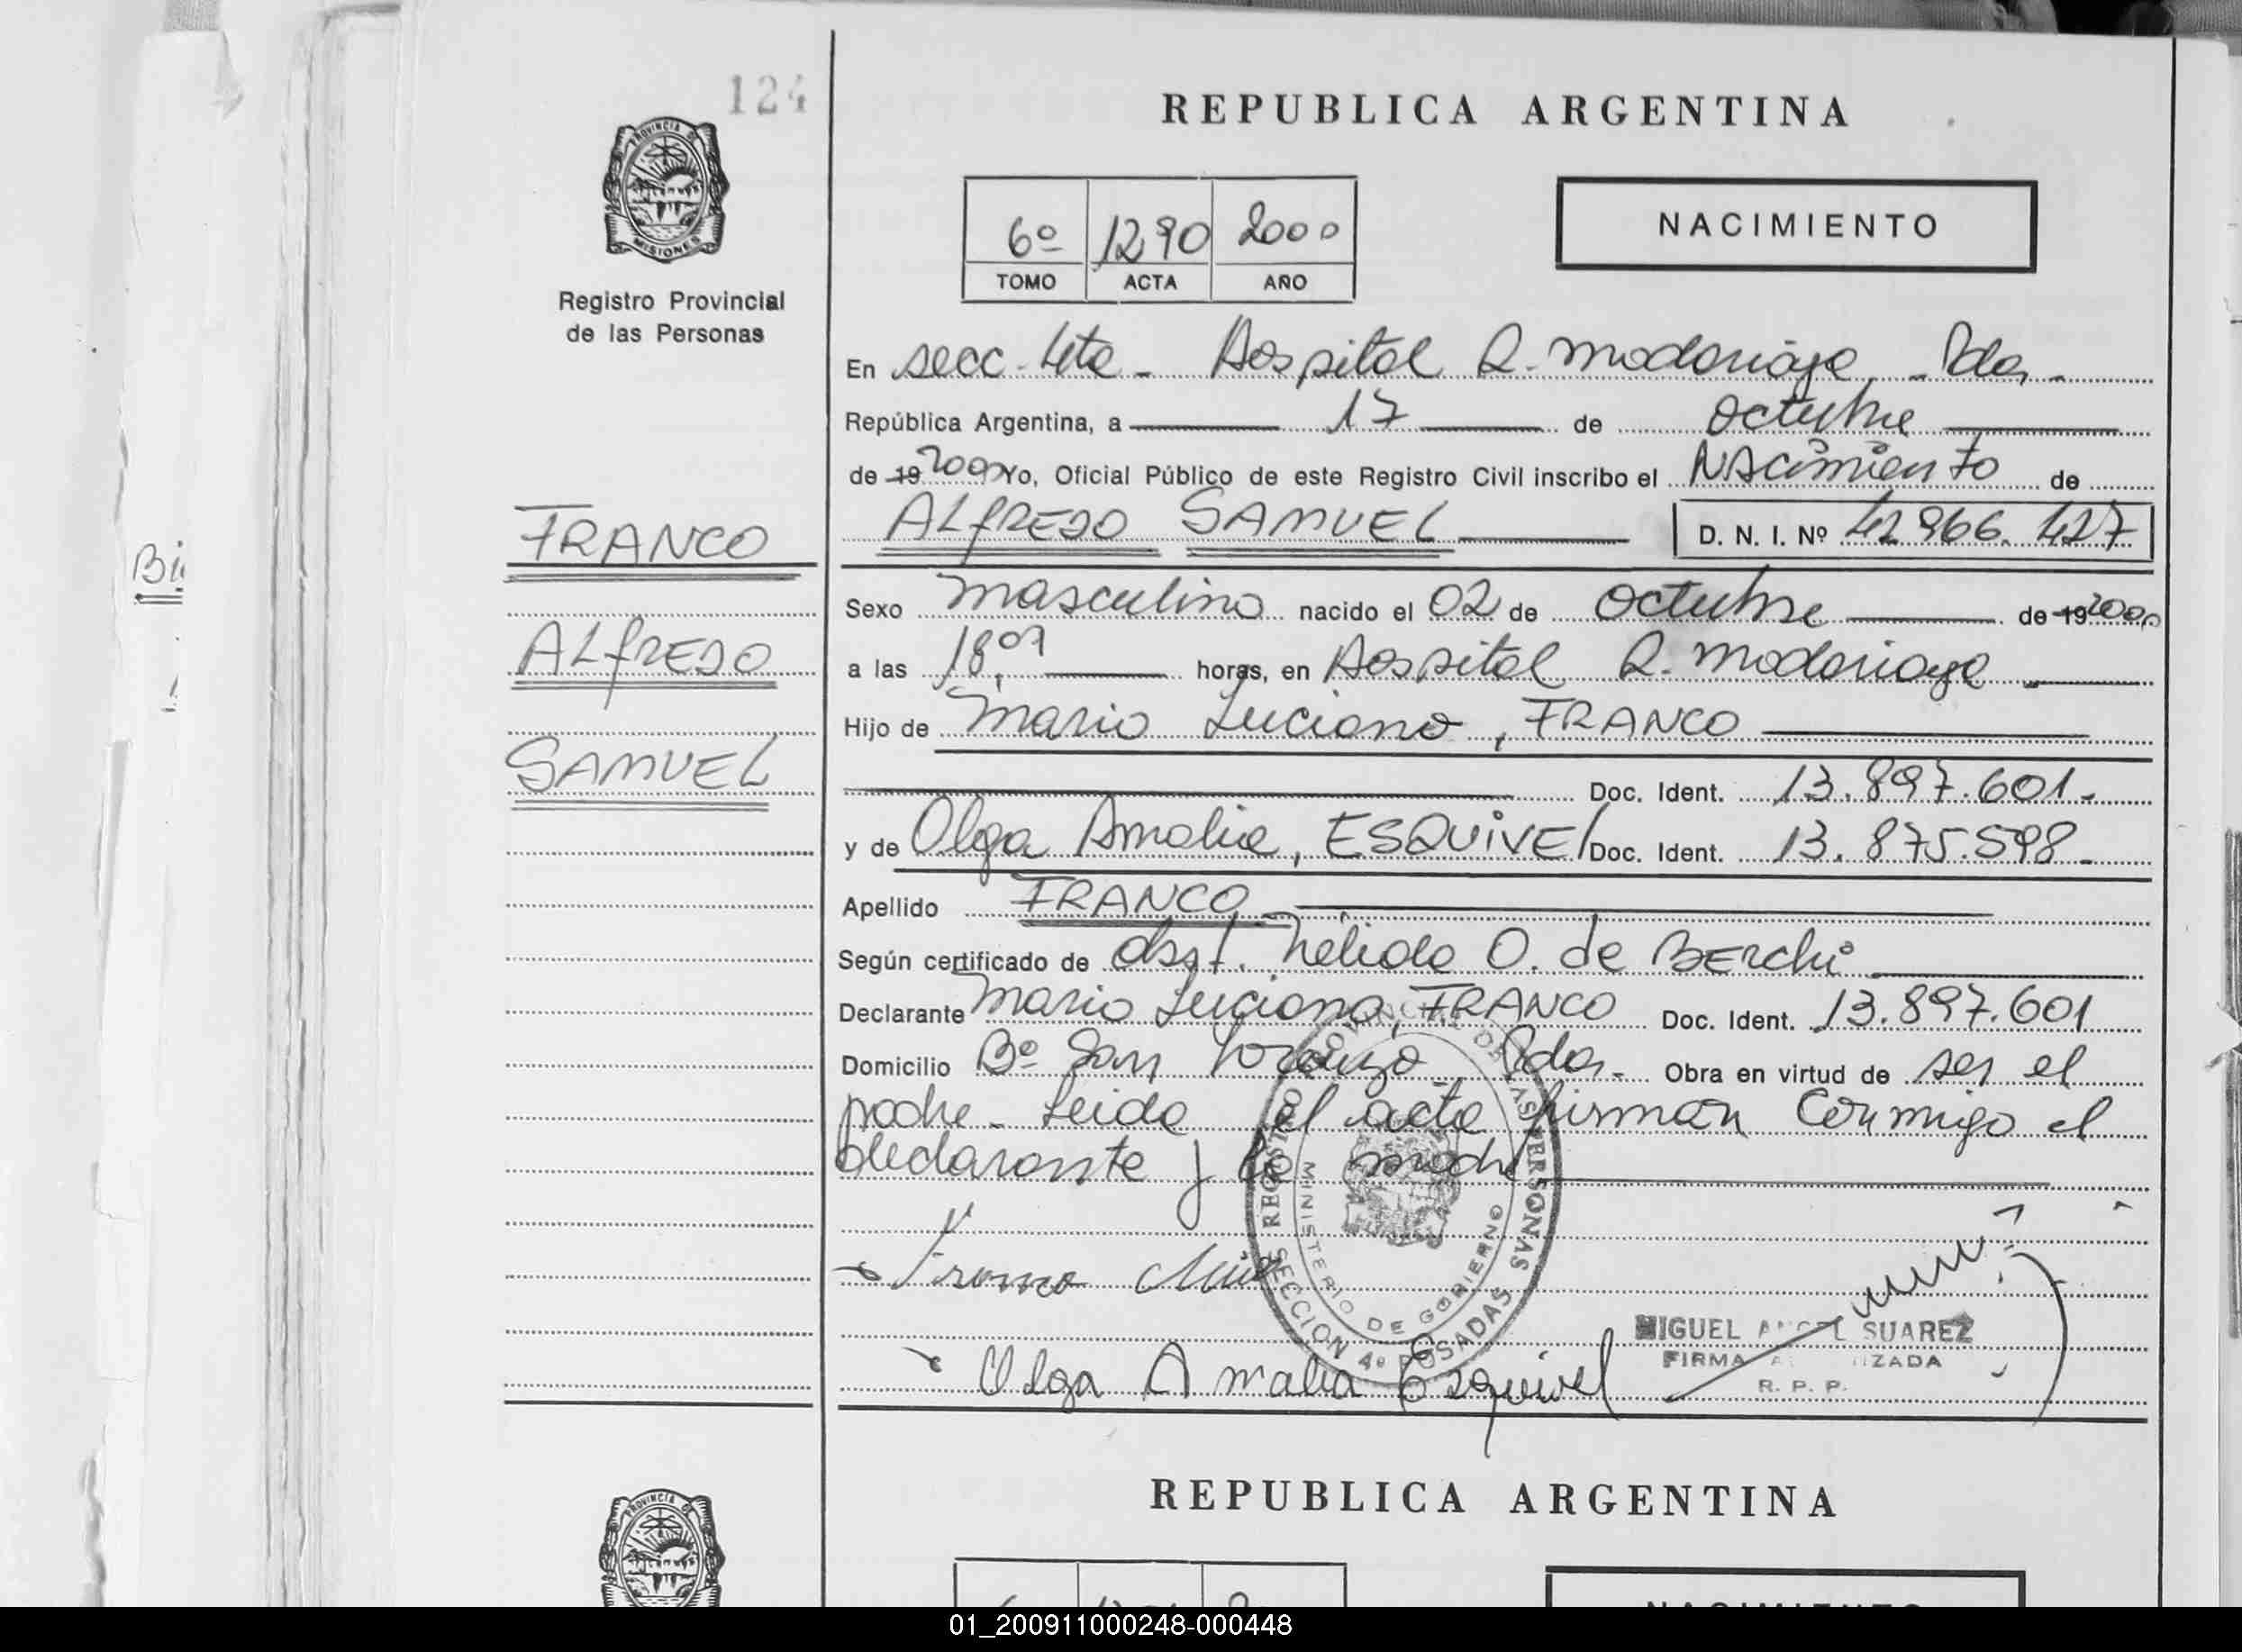 124
PROVINCIA DE
MISIONES
Registro Provincial
de las Personas
FRANCO
ALfREDO
SAMUEL
REPUBLICA ARGENTINA
6º 1290 2000
TOMO ACTA AÑO
NACIMIENTO
En secc. 4ta - Hospital R. Madariaga - Pdas -
República Argentina, a 17 de Octubre
de 19 2000 Yo, Oficial Público de este Registro Civil inscribo el NAcimiento de
ALfREDO SAMUEL D. N. I. Nº 42.966.427
Sexo masculino nacido el 02 de Octubre de 19 2000
a las 18,07 horas, en Hospital R. Madariaga
Hijo de Mario Luciano, FRANCO
Doc. Ident. 13.897.601.-
y de Olga Amalia, ESQUiVEl Doc. Ident. 13.875.598.-
Apellido FRANCO
Según certificado de obst. Nélida O. de BErchi
Declarante Mario Luciano, FRANCO Doc. Ident. 13.897.601
Domicilio Bº San Lorenzo - Pdas.- Obra en virtud de ser el
padre - Leida el acta firman Conmigo el
declarante y la madre
Franco
Olga Amalia Esquivel
REGISTRO PROVINCIAL DE LAS PERSONAS
SECCION 4º POSADAS
MINISTERIO DE GOBIERNO
MIGUEL ANGEL SUAREZ
FIRMA AUTORIZADA
R. P. P.
Bi
PROVINCIA DE
REPUBLICA ARGENTINA
NACIMIENTO
01_200911000248-000448